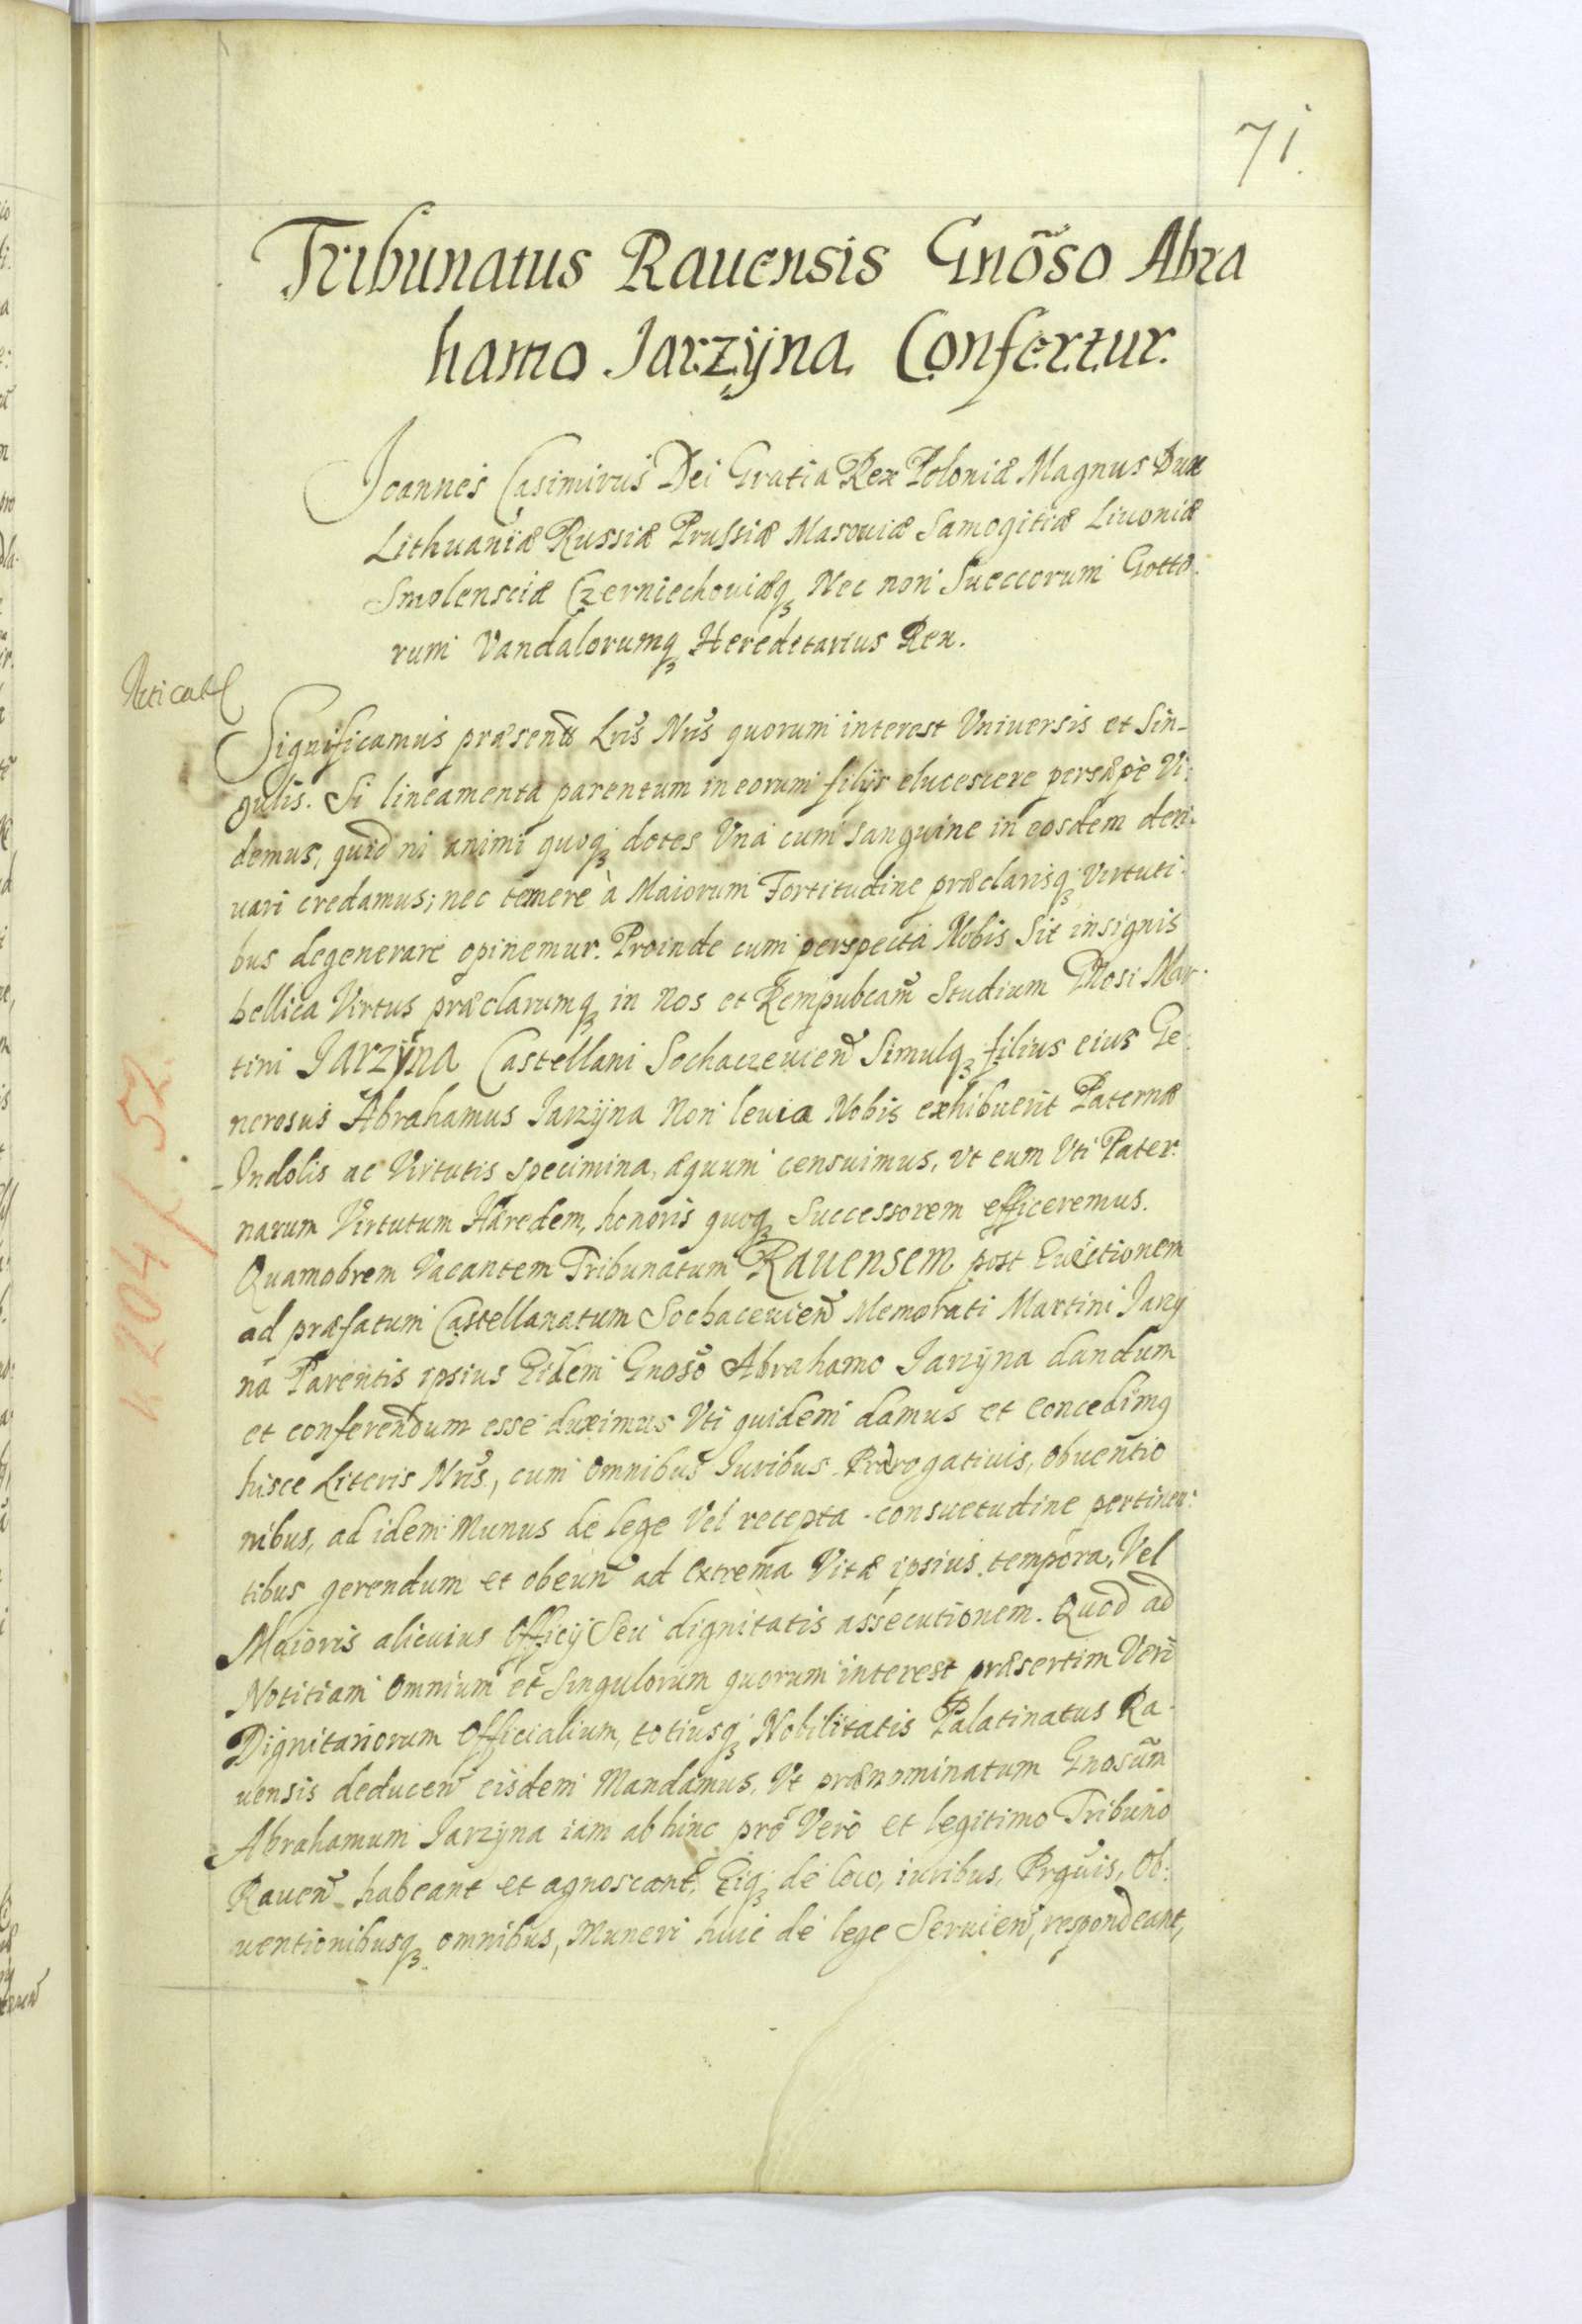 71.
Tribunatus Rauensis Gnõso Abra
hamo Jarzÿna Confertur.
Joannes Casimirus Dei Gratia Rex Poloniæ Magnus Dux
Lithuaniæ Russiæ Prussiæ Masouiæ Samogitiæ Liuoniæ
Smolensciæ Czerniechouiæq₃ Nec non Sueccorum Gotto
rum Vandalorumq₃ Hereditarius Rex.
Significamus præsentẽ Lrĩs Nrĩs quorum interest Vniuersis et Sin-
gulis. Si lineamenta parentum in eorum filijs elucescere persæpè Vi:
demus, quid ni animi quoq₃ dotes Vnà cum sanguine in eosdem deri:
uari credamus; nec temerè à Maiorum Fortitudine præclarisq₃ Virtuti:
bus degenerare opinemur. Proinde cum perspecta Nobis Sit insignis
bellica Virtus præclarumq₃ in Nos et Rempubcam̃ Studium Gnosi Mar:
tini Jarzÿna Castellani Sochaczeuien̄ Simulq₃ filius eius Ge:
nerosus Abrahamus Jarzÿna Non leuia Nobis exhibuerit Paternæ
Indolis ac Virtutis specimina, æquum censuimus, vt eum Vti Pater:
narum Virtutum Hæredem, honoris quoq₃ Successorem efficeremus.
Quamobrem Vacantem Tribunatum Rauensem post Euectionem
ad præfatum Castellanatum Sochaceuien̄ Memorati Martini Jarzy
na Parentis ipsius Eidem Gnosõ Abrahamo Jarzÿna dandum
et conferendum esse duximus Vti quidem damus et Concedimq
hisce Literis Nrĩs, cum omnibus Iuribus Prærogatiuis, obuentio
nibus, ad idem Munus de lege Vel recepta consuetudine pertinen:
tibus gerendum et obeun̄ ad Extrema Vitæ ipsius tempora, Vel
Maioris alicuius Officij Seu dignitatis assecutionem. Quod ad
Notitiam Omnium et Singulorum quorum interest præsertim Verò
Dignitariorum Officialium, totiusq₃ Nobilitatis Palatinatus Ra:
uensis deducen̄ eisdem Mandamus, Vt prænominatum Gnosum̃
Abrahamum Jarzÿna iam ab hinc pro Vero et legitimo Tribuno
Rauen̄ habeant et agnoscant, Eiq₃ de loco, iuribus, Prguis, Ob:
uentionibusq₃ omnibus, Muneri huic de lege Seruien̄, respondeant,
k 204/52